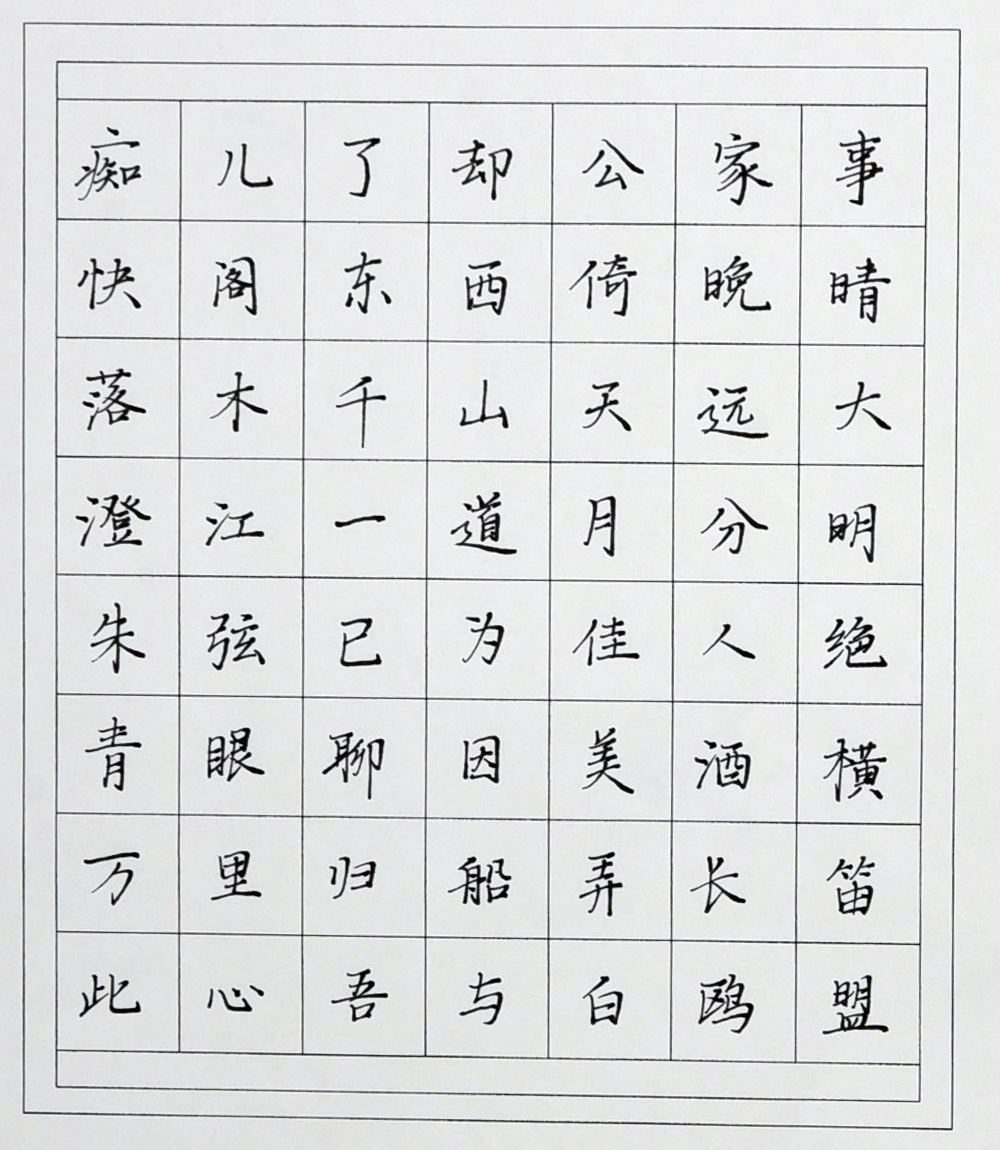 痴儿了却公家事
快阁东西倚晚晴
落木千山天远大
澄江一道月分明
朱弦已为佳人绝
青眼聊因美酒横
万里归船弄长笛
此心吾与白鸥盟